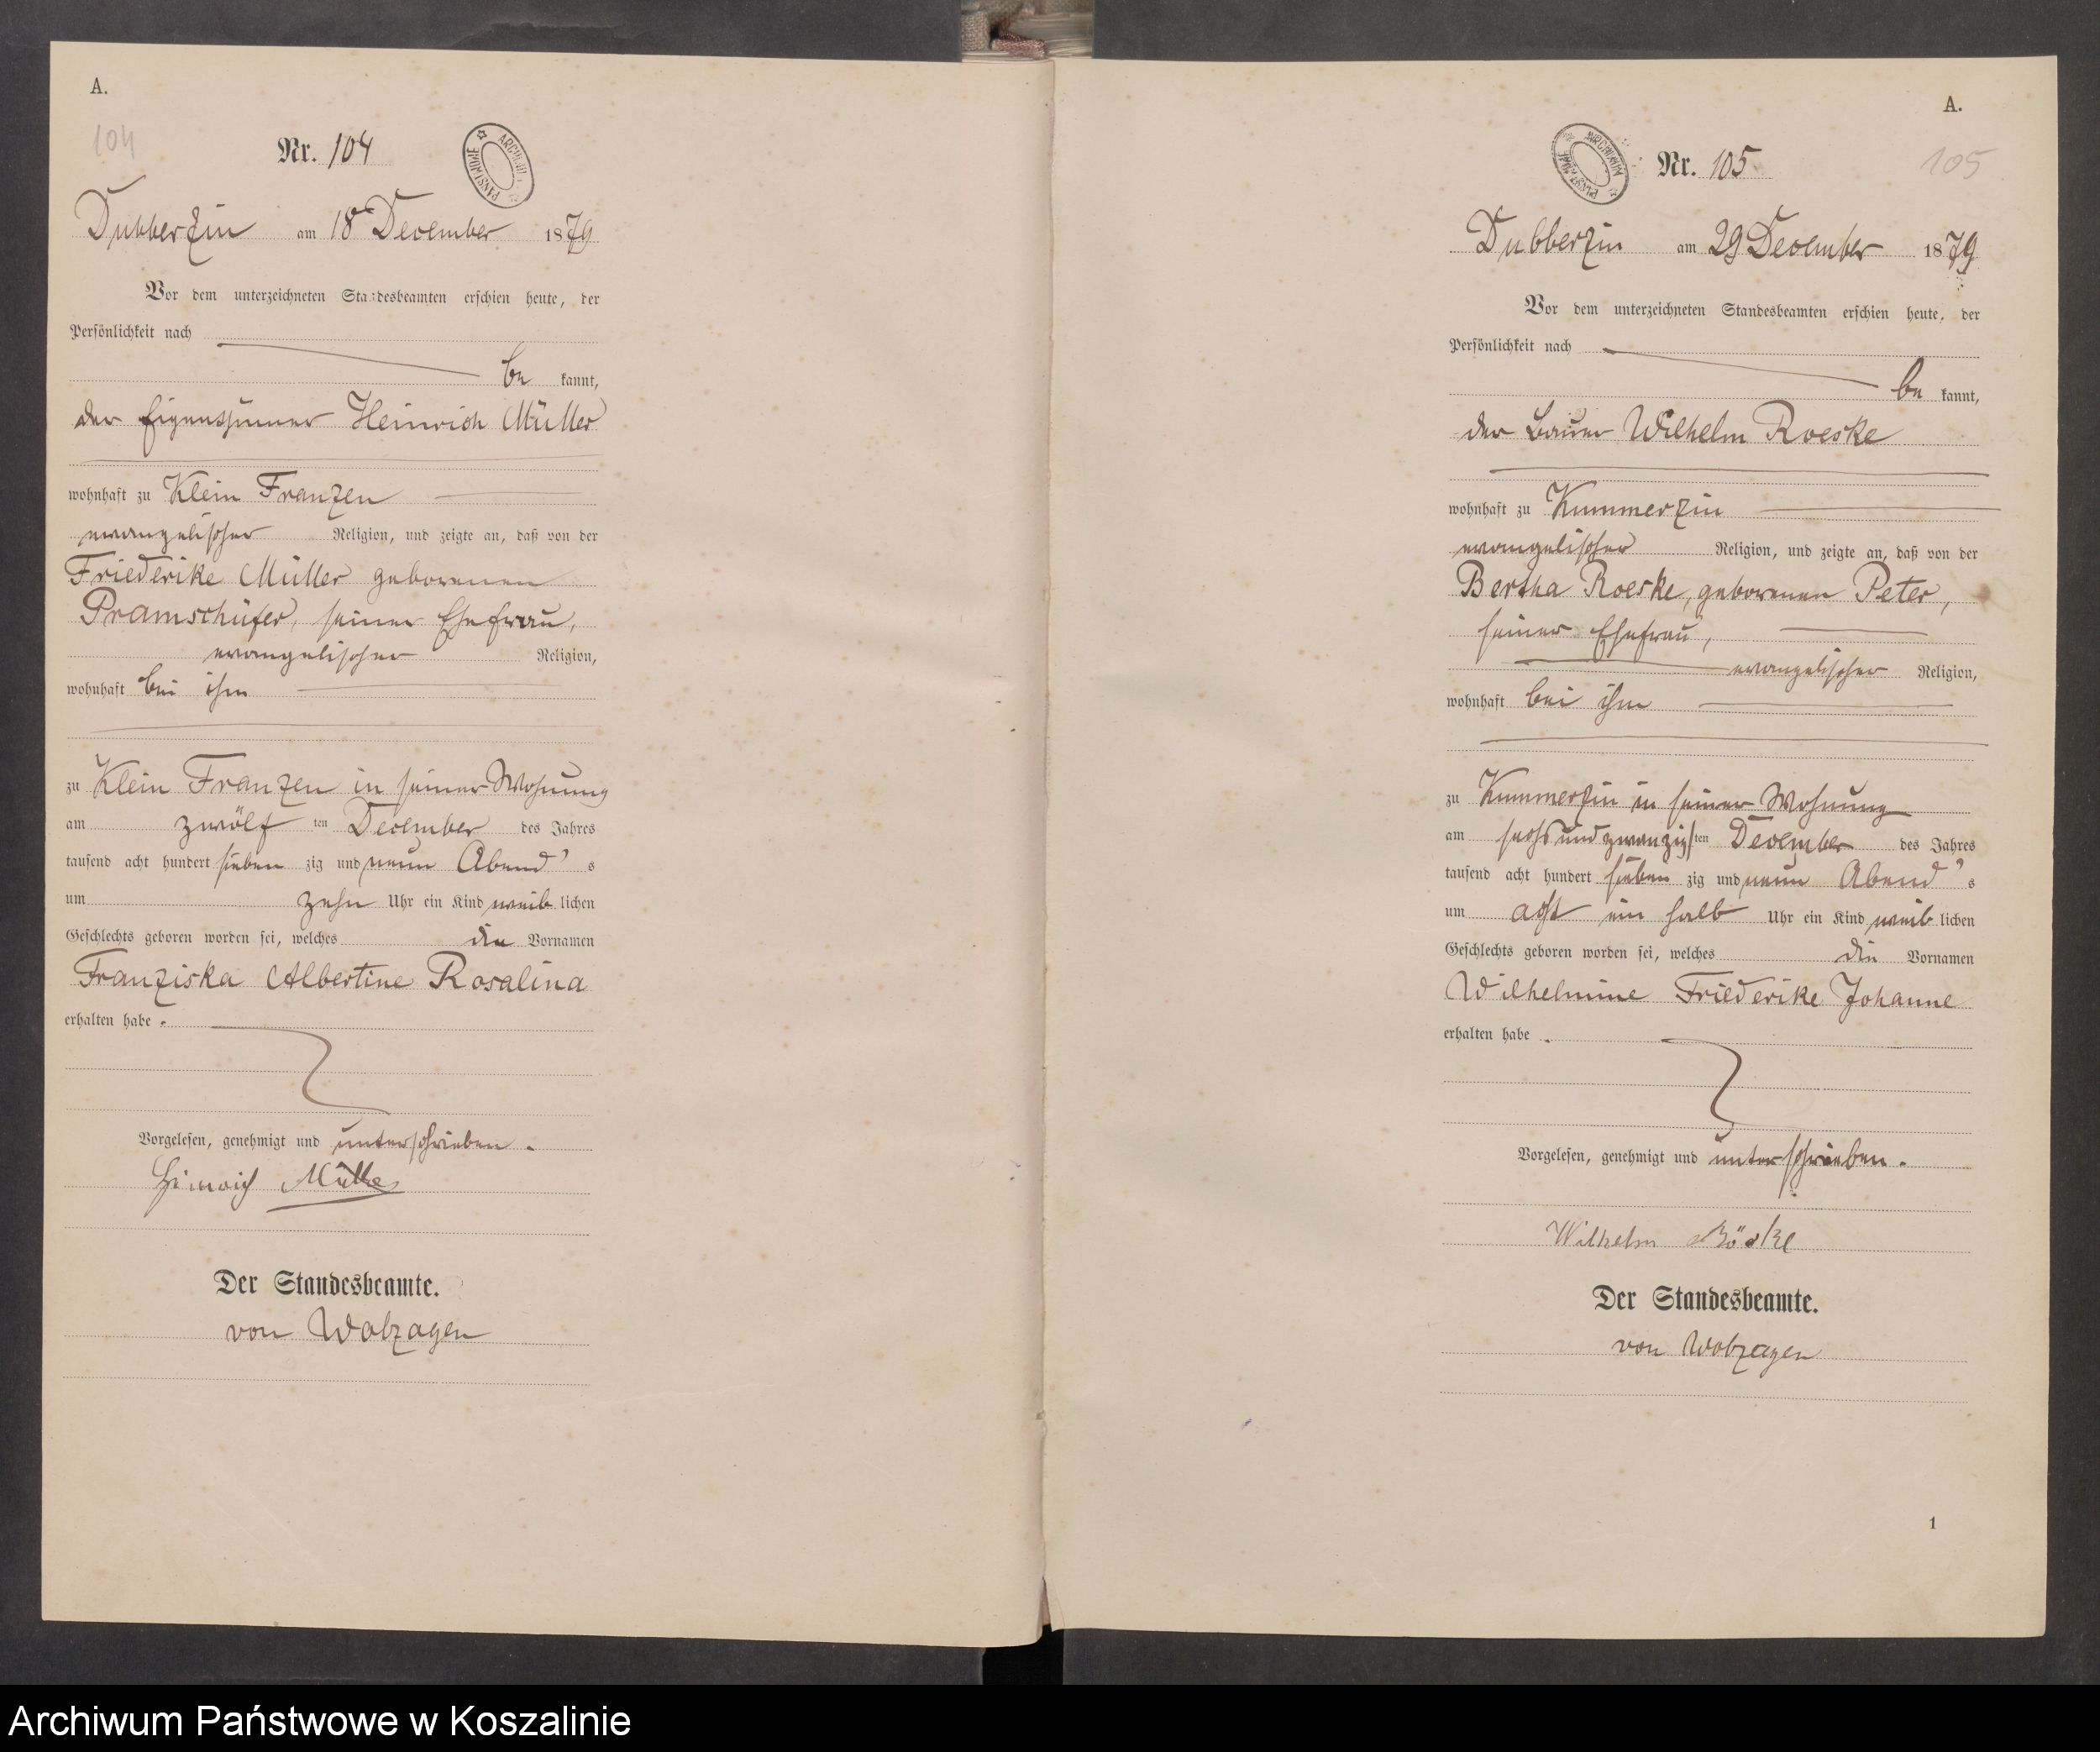 A.
104
Nr. 104
ARCHIWUM PAŃSTWOWE
Dubberzin am 18 December 1879
Vor dem unterzeichneten Standesbeamten erschien heute, der
Persönlichkeit nach
be kannt,
der Eigenthümer Heinrich Müller
wohnhaft zu Klein Franzen
evangelischer Religion, und zeigte an, daß von der
Friederike Müller geborenen
Pramschüfer, seiner Ehefrau,
evangelischer Religion,
wohnhaft bei ihm
zu Klein Franzen in seiner Wohnung
am zwölf ten December des Jahres
tausend acht hundert sieben zig und neun Abend's
um zehn Uhr ein Kind weib lichen
Geschlechts geboren worden sei, welches die Vornamen
Franziska Albertine Rosalina
erhalten habe.
Vorgelesen, genehmigt und unterschrieben.
Heinrich Müller
Der Standesbeamte.
von Wobzagen
A.
105
Nr. 105
Dubberzin am 29 December 1879
Vor dem unterzeichneten Standesbeamten erschien heute, der
Persönlichkeit nach
be kannt,
der Bauer Wilhelm Roeske
wohnhaft zu Kummerzin
evangelischer Religion, und zeigte an, daß von der
Bertha Roeske, geborenen Peter,
seiner Ehefrau,
evangelischer Religion,
wohnhaft bei ihm
zu Kummerzin in seiner Wohnung
am sechs und zwanzigsten December des Jahres
tausend acht hundert sieben zig und neun Abend's
um acht ein halb Uhr ein Kind weib lichen
Geschlechts geboren worden sei, welches die Vornamen
Wilhelmine Friederike Johanne
erhalten habe.
Vorgelesen, genehmigt und unterschrieben.
Wilhelm Röske
Der Standesbeamte.
von Wobzagen
1
Archiwum Państwowe w Koszalinie